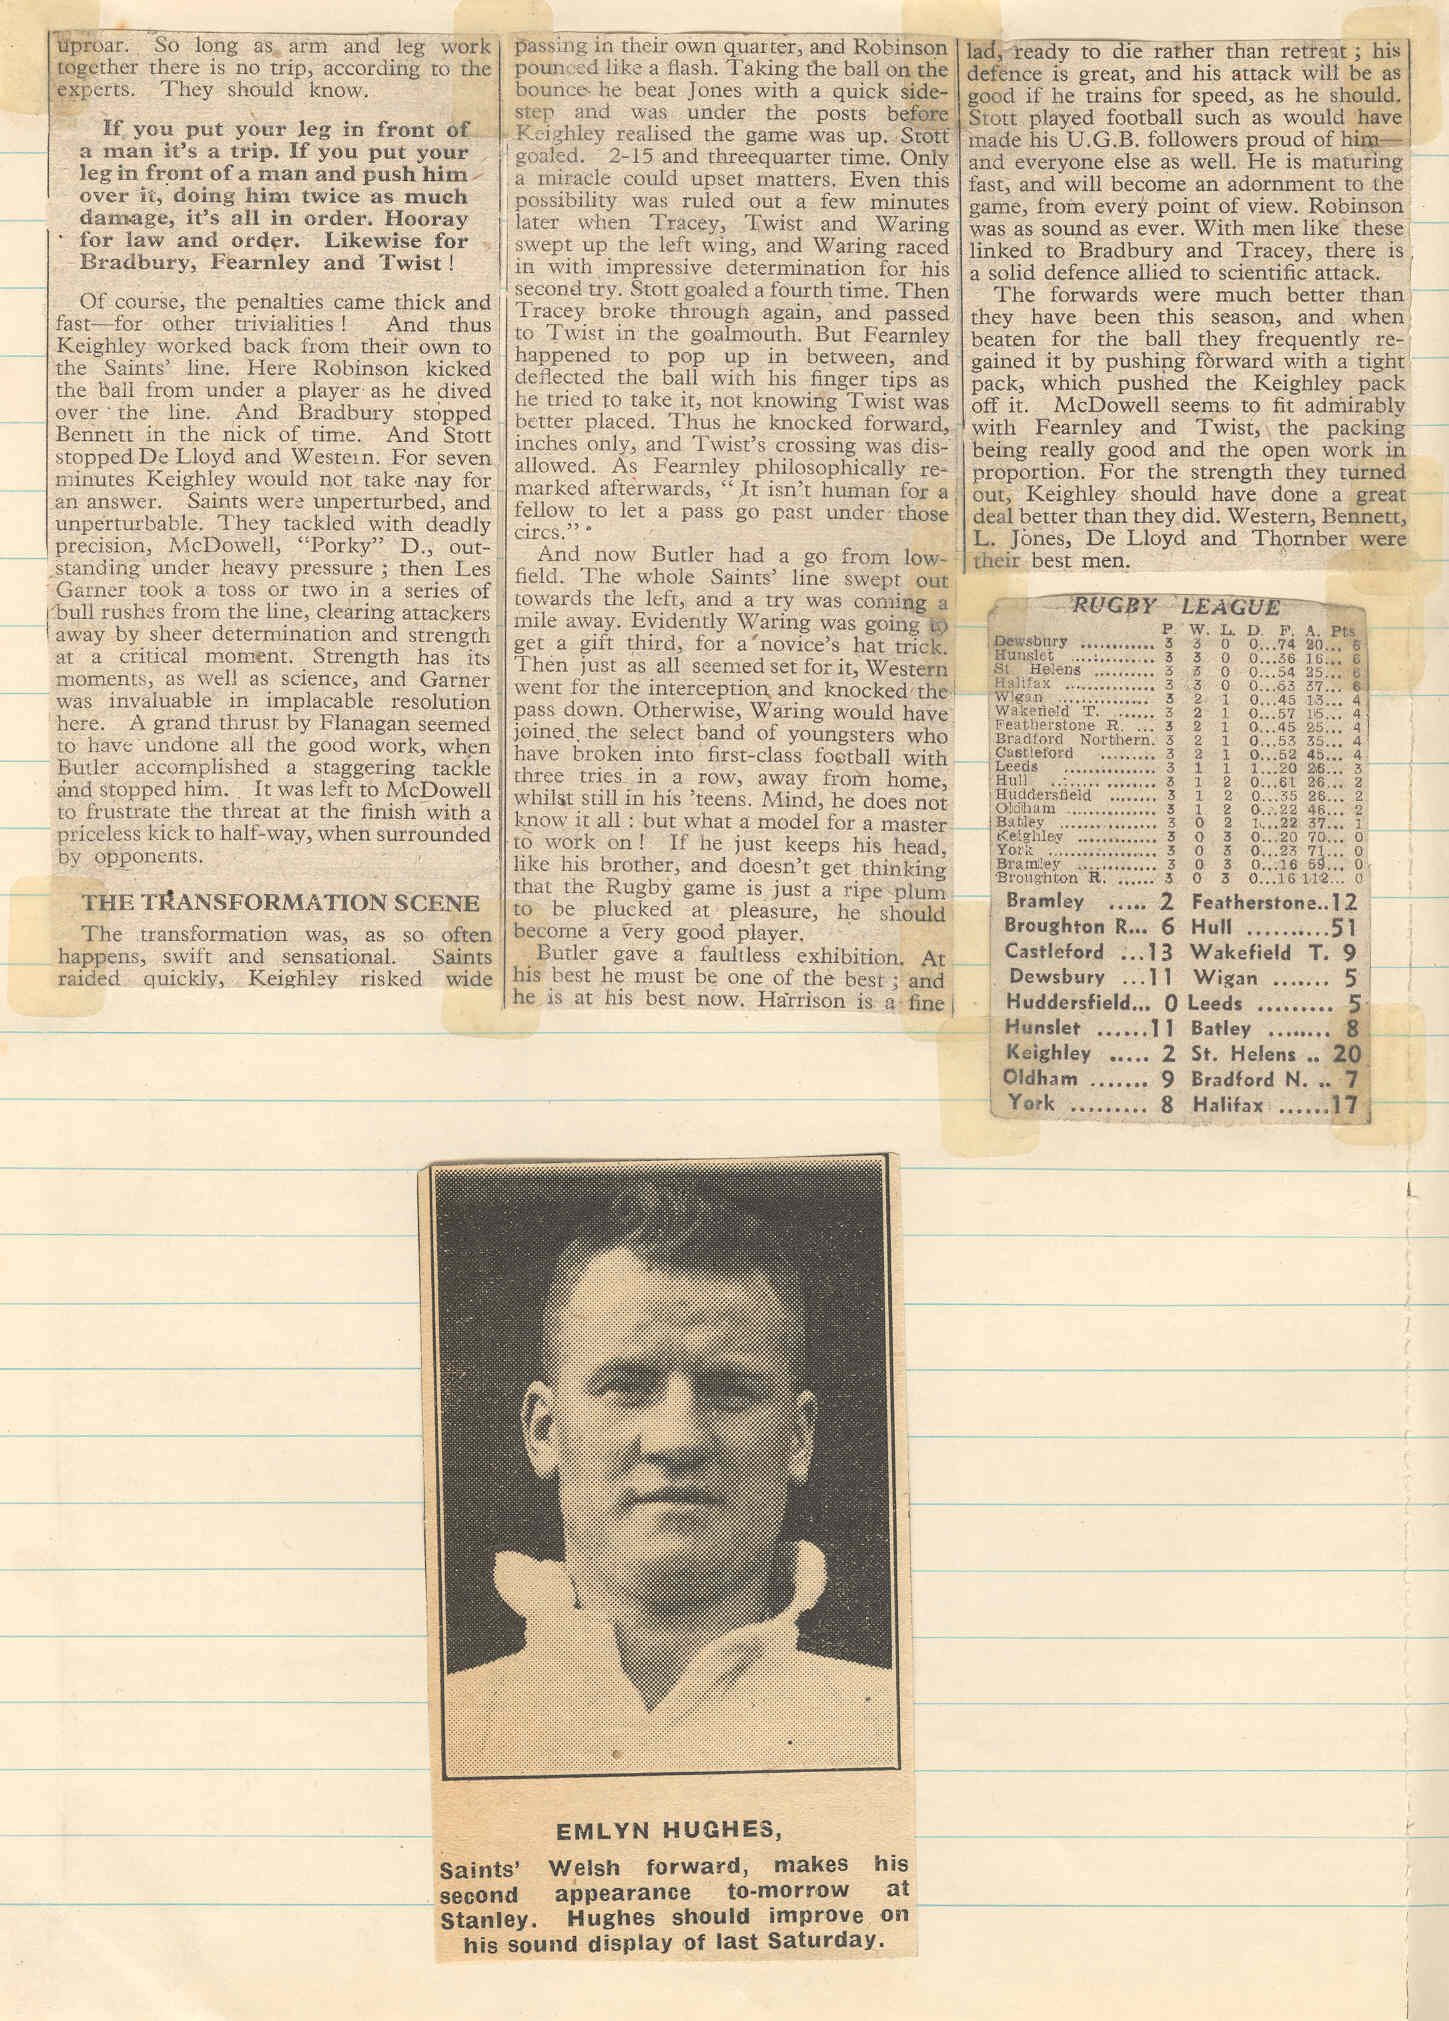 uproar. So long as arm and leg work
together there is no trip, according to the
experts. They should know.
If you put your leg in front of
a man it's a trip. If you put your
leg in front of a man and push him
over it, doing him twice as much
damage, it's all in order. Hooray
for law and order. Likewise for
Bradbury, Fearnley and Twist !
Of course, the penalties came thick and
fast—for other trivialities ! And thus
Keighley worked back from their own to
the Saints' line. Here Robinson kicked
the ball from under a player as he dived
over the line. And Bradbury stopped
Bennett in the nick of time. And Stott
stopped De Lloyd and Western. For seven
minutes Keighley would not take nay for
an answer. Saints were unperturbed, and
unperturbable. They tackled with deadly
precision, McDowell, "Porky" D., out-
standing under heavy pressure ; then Les
Garner took a toss or two in a series of
bull rushes from the line, clearing attackers
away by sheer determination and strength
at a critical moment. Strength has its
moments, as well as science, and Garner
was invaluable in implacable resolution
here. A grand thrust by Flanagan seemed
to have undone all the good work, when
Butler accomplished a staggering tackle
and stopped him. It was left to McDowell
to frustrate the threat at the finish with a
priceless kick to half-way, when surrounded
by opponents.
THE TRANSFORMATION SCENE
The transformation was, as so often
happens, swift and sensational. Saints
raided quickly, Keighley risked wide
passing in their own quarter, and Robinson
pounced like a flash. Taking the ball on the
bounce he beat Jones with a quick side-
step and was under the posts before
Keighley realised the game was up. Stott
goaled. 2-15 and threequarter time. Only
a miracle could upset matters. Even this
possibility was ruled out a few minutes
later when Tracey, Twist and Waring
swept up the left wing, and Waring raced
in with impressive determination for his
second try. Stott goaled a fourth time. Then
Tracey broke through again, and passed
to Twist in the goalmouth. But Fearnley
happened to pop up in between, and
deflected the ball with his finger tips as
he tried to take it, not knowing Twist was
better placed. Thus he knocked forward,
inches only, and Twist's crossing was dis-
allowed. As Fearnley philosophically re-
marked afterwards, "It isn't human for a
fellow to let a pass go past under those
circs."
And now Butler had a go from low-
field. The whole Saints' line swept out
towards the left, and a try was coming a
mile away. Evidently Waring was going to
get a gift third, for a novice's hat trick.
Then just as all seemed set for it, Western
went for the interception and knocked the
pass down. Otherwise, Waring would have
joined the select band of youngsters who
have broken into first-class football with
three tries in a row, away from home,
whilst still in his 'teens. Mind, he does not
know it all : but what a model for a master
to work on ! If he just keeps his head,
like his brother, and doesn't get thinking
that the Rugby game is just a ripe plum
to be plucked at pleasure, he should
become a very good player.
Butler gave a faultless exhibition. At
his best he must be one of the best ; and
he is at his best now. Harrison is a fine
lad, ready to die rather than retreat ; his
defence is great, and his attack will be as
good if he trains for speed, as he should.
Stott played football such as would have
made his U.G.B. followers proud of him—
and everyone else as well. He is maturing
fast, and will become an adornment to the
game, from every point of view. Robinson
was as sound as ever. With men like these
linked to Bradbury and Tracey, there is
a solid defence allied to scientific attack.
The forwards were much better than
they have been this season, and when
beaten for the ball they frequently re-
gained it by pushing forward with a tight
pack, which pushed the Keighley pack
off it. McDowell seems to fit admirably
with Fearnley and Twist, the packing
being really good and the open work in
proportion. For the strength they turned
out, Keighley should have done a great
deal better than they did. Western, Bennett,
L. Jones, De Lloyd and Thornber were
their best men.
RUGBY LEAGUE
P. W. L. D. F. A. Pts
Dewsbury ............ 3 3 0 0...74 20... 6
Hunslet ............ 3 3 0 0...36 16... 6
St. Helens .......... 3 3 0 0...54 25... 6
Halifax .............. 3 3 0 0...53 37... 6
Wigan ............... 3 2 1 0...45 13... 4
Wakefield T. ....... 3 2 1 0...57 15... 4
Featherstone R. ... 3 2 1 0...45 25... 4
Bradford Northern. 3 2 1 0...53 35... 4
Castleford ......... 3 2 1 0...52 45... 4
Leeds .............. 3 1 1 1...20 26... 3
Hull ................ 3 1 2 0...61 26... 2
Huddersfield ........ 3 1 2 0...35 26... 2
Oldham ............. 3 1 2 0...22 46... 2
Batley ............... 3 0 2 1...22 37... 1
Keighley ............ 3 0 3 0...20 70... 0
York ................ 3 0 3 0...23 71... 0
Bramley ............ 3 0 3 0...16 59... 0
Broughton R. ...... 3 0 3 0...16 112... 0
Bramley ..... 2 Featherstone..12
Broughton R... 6 Hull ..........51
Castleford ...13 Wakefield T. 9
Dewsbury ...11 Wigan ....... 5
Huddersfield... 0 Leeds ......... 5
Hunslet ......11 Batley ........ 8
Keighley ..... 2 St. Helens .. 20
Oldham ....... 9 Bradford N. .. 7
York ......... 8 Halifax ......17
EMLYN HUGHES,
Saints' Welsh forward, makes his
second appearance to-morrow at
Stanley. Hughes should improve on
his sound display of last Saturday.